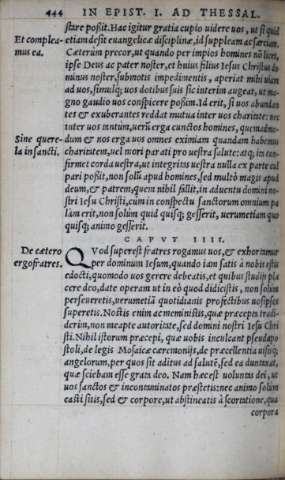 444 IN EPIST. I. AD THESSAL.
stare possit. Hac igitur gratia cupio uidere uos, ut si quid
Et complea-
mus ea.
etiam desit euangelicæ disciplinæ, id suppleam ac sarciam.
Cæterùm precor, ut quando per impios homines nõ licet,
ipse Deus ac pater noster, et huius filius Iesus Christus do
minus noster, submotis impedimentis, aperiat mihi uiam
ad uos, simulq; uos dotibus suis sic interim augeat, ut ma-
gno gaudio uos conspicere possim. Id erit, si uos abundan
tes & exuberantes reddat mutua inter uos charitate: nec
tuter uos mutùm, uerũ erga cunctos homines, quemadmo-
Sine quere-
la in sancti.
dum & nos erga uos omnes eximiam quandam habemus
charitatem, uel mori parati pro uestra salute: atq; ita con-
firmet corda uestra, ut integritas uestra nulla ex parte cul
pari possit, non solũ apud homines, sed multò magis apud
deum, & patrem, quem nihil fallit, in aduentu domini no-
stri Iesu Christi, cùm in conspectu sanctorum omnium pa
làm erit, non solùm quid quisq; gesserit, uerumetiam quo
quisq; animo gesserit.
CAPVT IIII.
De cætero
ergo fratres.
QVod superest fratres rogamus uos, & exhortamur
per dominum Iesum, quando iam satis à nobis estis
edocti, quomodo uos gerere debeatis, et quibus studijs pla
cere deo, date operam ut in eò quod didicistis, non solùm
perseueretis, uerumetiã quotidianis profectibus uosipsos
superetis. Nostis enim ac meministis, quæ præcepta tradi-
derim, non meapte autoritate, sed domini nostri Iesu Chri
sti. Nihil istorum præcepi, quæ uobis inculcant pseudapo
stoli, de legis Mosaicæ cæremonijs, de præcellentia uisisq;
angelorum, per quos sit aditus ad salutẽ, sed ea duntaxat,
quæ sciebam esse grata deo. Nam hæc est uoluntas dei, ut
uos sanctos & incontaminatos præstetis: nec animo solùm
casti sitis, sed & corpore, ut abstineatis à scortatione, qua
corpora